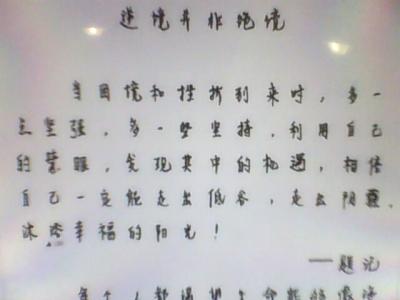 逆境并非绝境
当困境和挫折到来时，多一
点坚强，多一些坚持，利用自己
的慧眼，发现其中的机遇，相信
自己一定能走出低谷，走出阴霾，
沐浴幸福的阳光！
——题记
每个人都